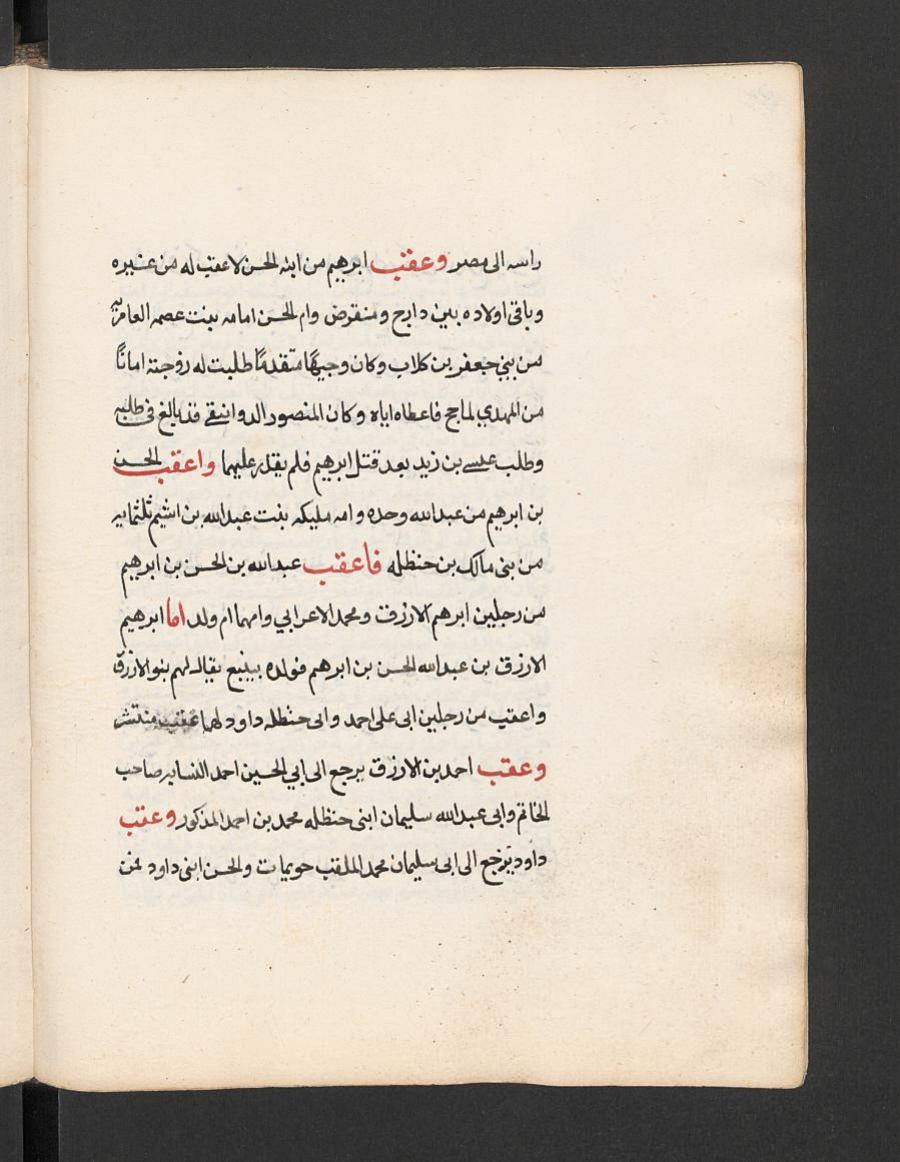 راسه الى مصر وعقب ابرهيم من ابنه الحسن لا عقب له من غيره
وباقى اولاده بين دارج ومنقرض وام الحسن امامه بنت عصمه العامريه
من بني جعفر بن كلاب وكان وجيهًا متقدمًا طلبت له زوجته امانًا
من المهدي لما حج فاعطاه اياه وكان المنصور الدوانيقى قد بالغ فى طلبه
وطلب عيسى بن زيد بعد قتل ابرهيم فلم يقدر عليهما واعقب الحسن
بن ابرهيم من عبدالله وحده وامه مليكه بنت عبدالله بن اشيم
من بنى مالك بن حنظله فاعقب عبدالله بن الحسن بن ابرهيم
من رجلين ابرهم الازرق ومحمد الاعرابي وامهما ام ولد اما ابرهيم
الازرق بن عبدالله الحسن بن ابرهم فولده بينبع يقال لهم بنو الازرق
واعقب من رجلين ابى على احمد وابى حنظله داود لهما عقب منتشر
وعقب احمد بن الازرق يرجع الى ابي الحسين احمد النسابه صاحب
الخاتم وابى عبدالله سليمان ابنى حنظله محمد بن احمد المذكور وعقب
داود يرجع الى ابى سليمان محمد الملقب حويمات والحسن ابنى داود فمن